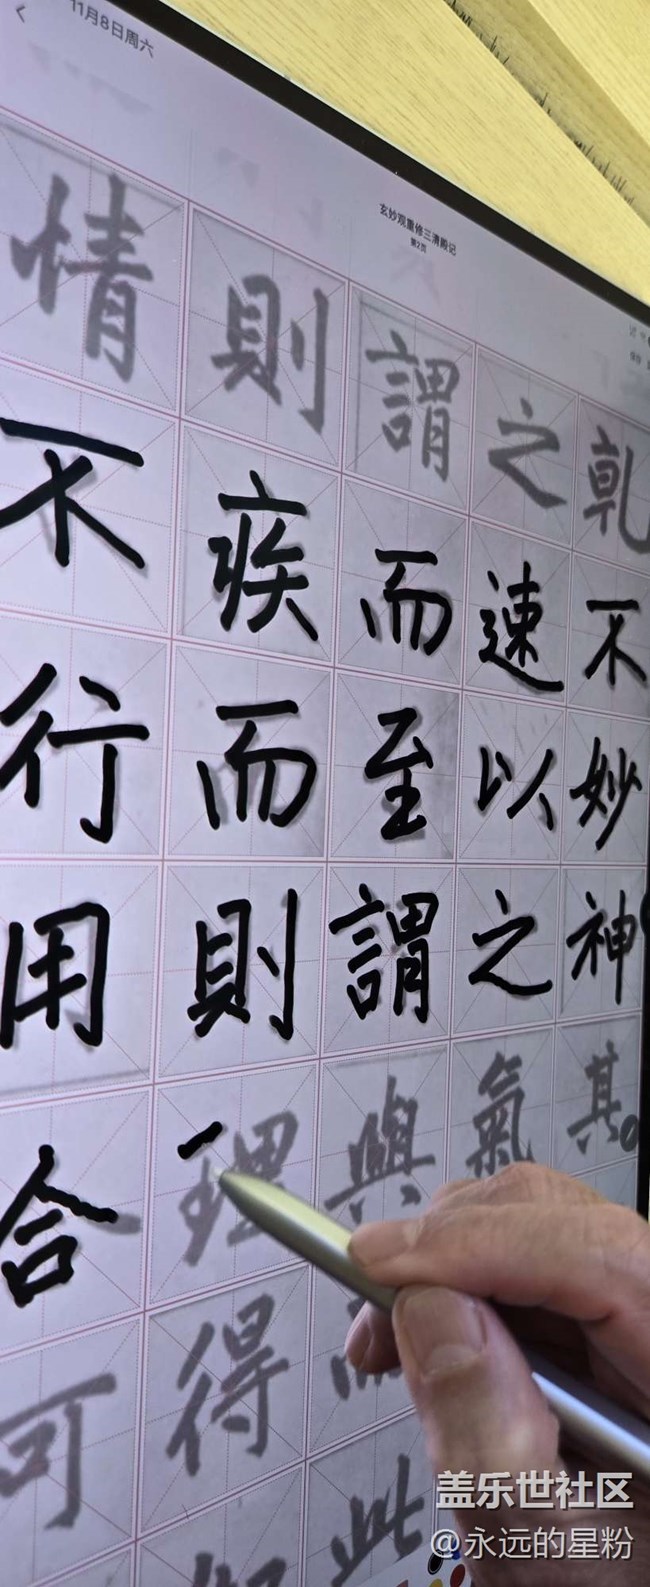 11月8日周六
玄妙观重修三清殿记
第2页
情則謂之乾
不疾而速不
行而至以妙
用則謂之神
合理與氣其
可得
此
盖乐世社区
@永远的星粉